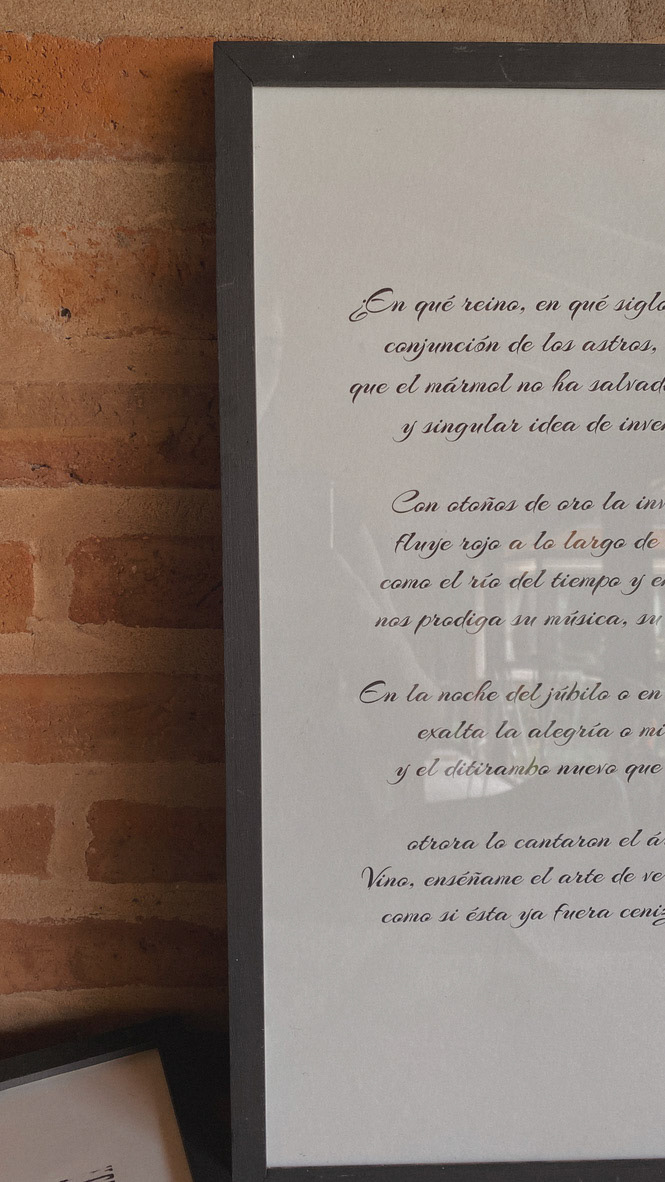 ¿En qué reino, en qué siglo
conjunción de los astros,
que el mármol no ha salvad
y singular idea de inve
Con otoños de oro la inv
fluye rojo a lo largo de
como el río del tiempo y e
nos prodiga su música, su
En la noche del júbilo o en
exalta la alegría o mi
y el ditirambo nuevo que
otrora lo cantaron el ár
Vino, enséñame el arte de ve
como si ésta ya fuera ceniz